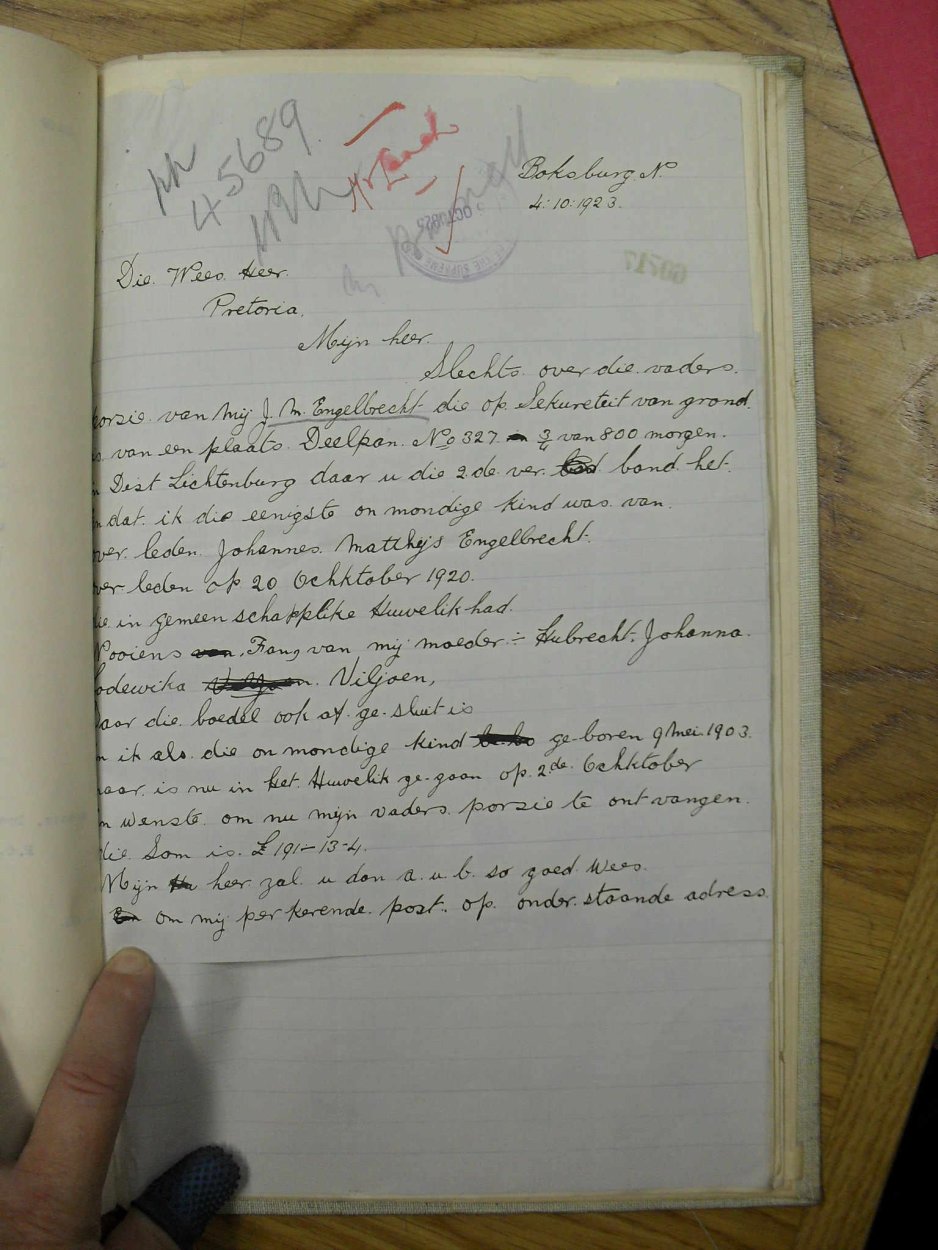 45689
Boksburg N.
4:10:1923.
OCT 1923
60717
Die Wees Heer.
Pretoria.
Mijn heer.
Slechts over die vaders.
porsie van mij J. M. Engelbrecht die op Sekureteit van grond.
van een plaats Deelpan No 327 3/4 van 800 morgen.
Dist Lichtenburg daar u die 2.de ver. band het.
dat ik die eenigste on mondige kind was van.
over leden Johannes Matthijs Engelbrecht.
ver leden op 20 Ochktober 1920.
die in gemeen schaplike Huwelik had.
Nooiens van mij moeder ÷ Hubrecht Johanna.
Lodewika Viljoen,
daar die boedel ook af ge-sluit is
ik als die on mondige kind ge-boren 9 Mei 1903.
daar is nu in het Huwelik ge-gaan op 2de Ochktober
wenste om nu mijn vaders porsie te ont vangen.
die Som is. £ 191-13-4.
Mijn heer zal u dan a.u.b. so goed wees.
om mij per kerende post. op onder staande adress.